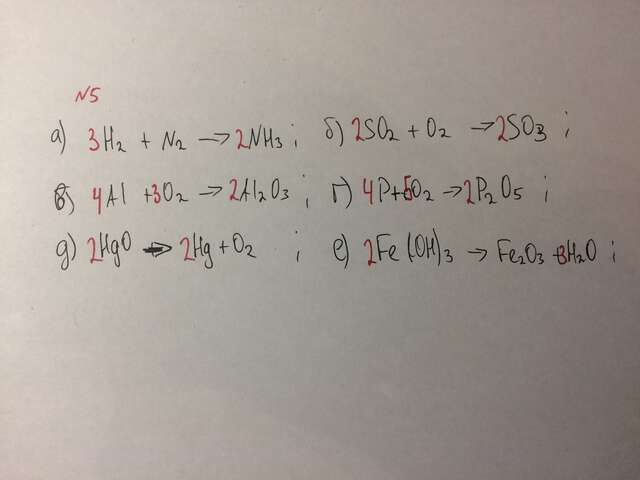 N5
а) 3H₂ + N₂ → 2NH₃ ; б) 2SO₂ + O₂ → 2SO₃ ;
в) 4Al + 3O₂ → 2Al₂O₃ ; г) 4P + 5O₂ → 2P₂O₅ ;
д) 2HgO → 2Hg + O₂ ; е) 2Fe(OH)₃ → Fe₂O₃ + 3H₂O ;